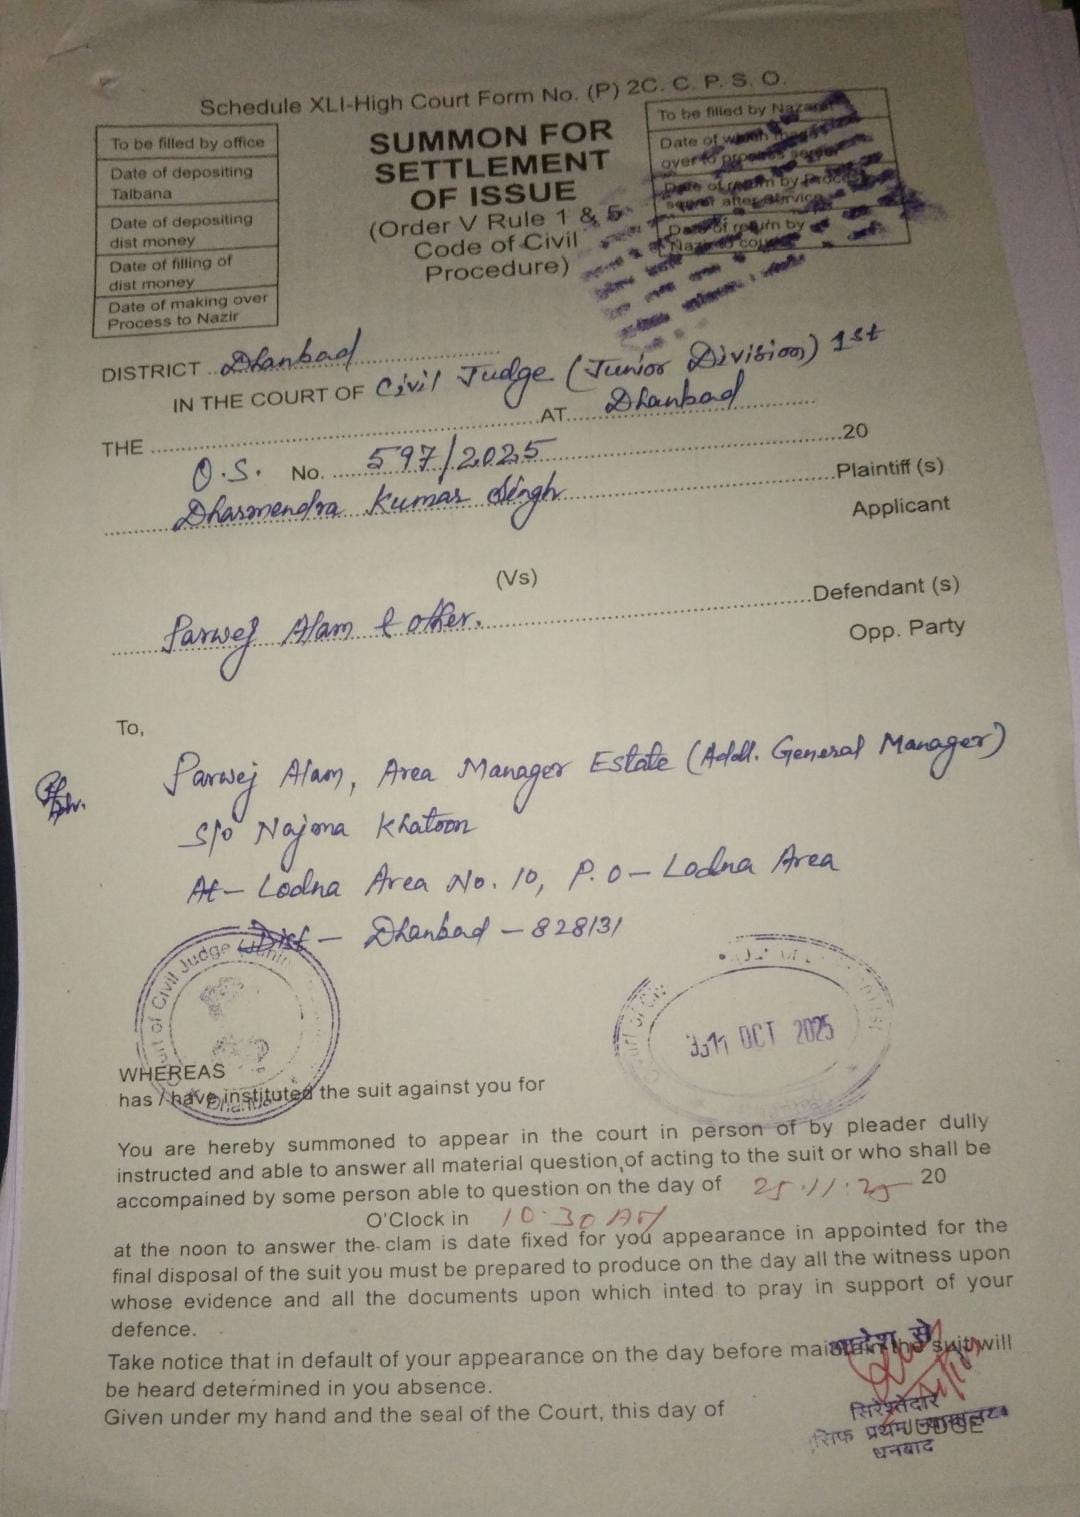 Schedule XLI-High Court Form No. (P) 2C. C. P. S. O.
To be filled by office
Date of depositing
Talbana
Date of depositing
dist money
Date of filling of
dist money
Date of making over
Process to Nazir
SUMMON FOR
SETTLEMENT
OF ISSUE
(Order V Rule 1 & 5
Code of Civil
Procedure)
To be filled by Nazarat
Date of which
over to process server
Date of return by Process
server after Service
Date of return by
Nazir to court
DISTRICT Dhanbad
IN THE COURT OF Civil Judge (Junior Division) 1st
THE AT Dhanbad
O.S. No. 597/2025 20
Dharmendra Kumar Singh Plaintiff (s)
Applicant
(Vs)
Parwej Alam & other. Defendant (s)
Opp. Party
To,
Parwej Alam, Area Manager Estate (Addl. General Manager)
S/o Najma Khatoon
At- Lodna Area No. 10, P.O- Lodna Area
Dist - Dhanbad - 828131
Court of Civil Judge (Junio
Dhanbad
OCT 2025
WHEREAS
has / have instituted the suit against you for
You are hereby summoned to appear in the court in person of by pleader dully
instructed and able to answer all material question of acting to the suit or who shall be
accompained by some person able to question on the day of 25.11.25 20
O'Clock in 10.30 AM
at the noon to answer the clam is date fixed for you appearance in appointed for the
final disposal of the suit you must be prepared to produce on the day all the witness upon
whose evidence and all the documents upon which inted to pray in support of your
defence.
Take notice that in default of your appearance on the day before maintain the suit will
be heard determined in you absence.
Given under my hand and the seal of the Court, this day of
आदेश से
सिरेश्तेदार
JUDGE
धनबाद